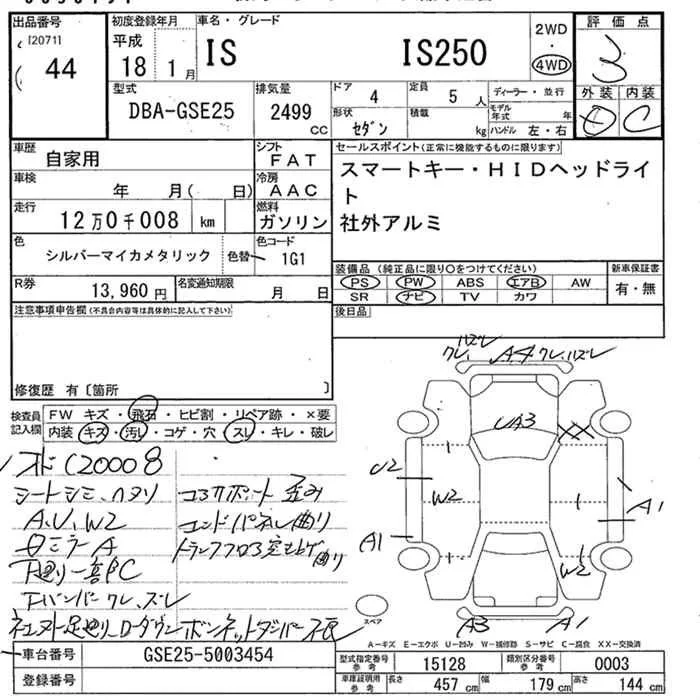 出品番号
I20711
44
初度登録年月
平成
18 1月
車名・グレード
IS IS250
2WD
・
4WD
評価点
3
外装 内装
D C
型式
DBA-GSE25
排気量
2499 CC
ドア 4
定員 5 人
形状 セダン
積載 kg
ディーラー・並行
モデル年式 年
ハンドル 左・右
車歴 自家用
シフト FAT
車検 年 月( 日)
冷房 AAC
走行 12万0千008 km
燃料 ガソリン
色 シルバーマイカメタリック 色替
色コード 1G1
R券 13,960円
名変通知期限 月 日
セールスポイント(正常に機能するものに限ります)
スマートキー・HIDヘッドライ
ト
社外アルミ
装備品(純正品に限り○をつけてください)
PS PW ABS エアB AW
SR ナビ TV カワ
新車保証書
有・無
後日品
注意事項申告欄(不具合内容等は具体的に記入して下さい)
修復歴 有〔箇所 〕
検査員
記入欄
FW キズ・飛石・ヒビ割・リペア跡・×要
内装 キズ・汚レ・コゲ・穴・スレ・キレ・破レ
シートシミ、ヘタリ
コアサポート歪み
A、U、W2
エンドパネル曲り
ロミラーA
トランクフロア突上げ曲り
下廻り一部C
Fバンパーワレ、ズレ
ボンネットダンパー不良
ワレ、ハズレ
A4
ワレ、ハズレ
UA3
U2
W2
A1
A1
W2
A3
A1
スペア
A-キズ E-エクボ U-凹み W-補修跡 S-サビ C-腐食 XX-交換済
車台番号 GSE25-5003454
登録番号
型式指定番号
参考
15128
類別区分番号
参考
0003
車庫証明用
参考
長さ 457 cm
幅 179 cm
高さ 144 cm